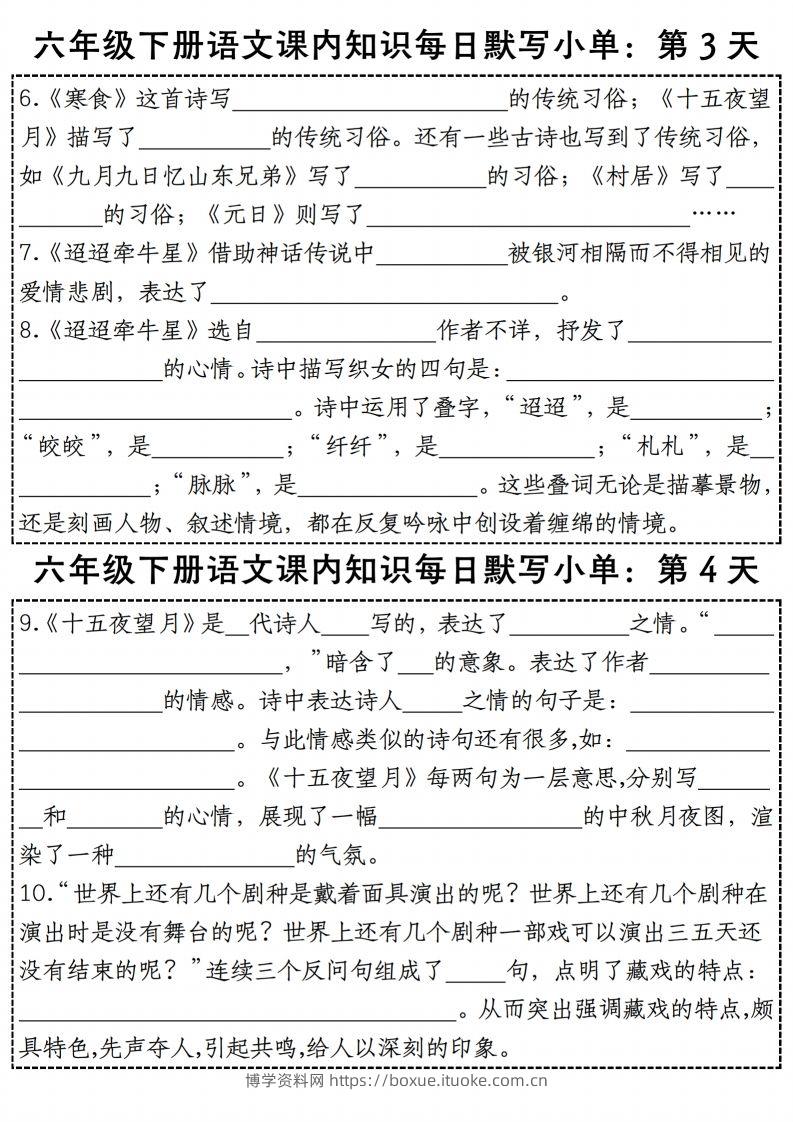 六年级下册语文课内知识每日默写小单：第3天
6.《寒食》这首诗写_______________________的传统习俗；《十五夜望
月》描写了___________的传统习俗。还有一些古诗也写到了传统习俗，
如《九月九日忆山东兄弟》写了___________的习俗；《村居》写了____
_______的习俗；《元日》则写了___________________________……
7.《迢迢牵牛星》借助神话传说中___________被银河相隔而不得相见的
爱情悲剧，表达了_____________________________。
8.《迢迢牵牛星》选自_______________作者不详，抒发了____________
____________的心情。诗中描写织女的四句是：______________________
_______________________。诗中运用了叠字，“迢迢”，是___________；
“皎皎”，是___________；“纤纤”，是_____________；“札札”，是__
___________；“脉脉”，是_______________。这些叠词无论是描摹景物，
还是刻画人物、叙述情境，都在反复吟咏中创设着缠绵的情境。
六年级下册语文课内知识每日默写小单：第4天
9.《十五夜望月》是__代诗人____写的，表达了__________之情。“_____
______________________，”暗含了___的意象。表达了作者__________
____________的情感。诗中表达诗人_____之情的句子是：____________
__________________。与此情感类似的诗句还有很多,如：____________
__________________。《十五夜望月》每两句为一层意思,分别写______
__和________的心情，展现了一幅_________________的中秋月夜图，渲
染了一种_______________的气氛。
10.“世界上还有几个剧种是戴着面具演出的呢？世界上还有几个剧种在
演出时是没有舞台的呢？世界上还有几个剧种一部戏可以演出三五天还
没有结束的呢？”连续三个反问句组成了_____句，点明了藏戏的特点：
____________________________________。从而突出强调藏戏的特点,颇
具特色,先声夺人,引起共鸣,给人以深刻的印象。
博学资料网 https://boxue.ituoke.com.cn